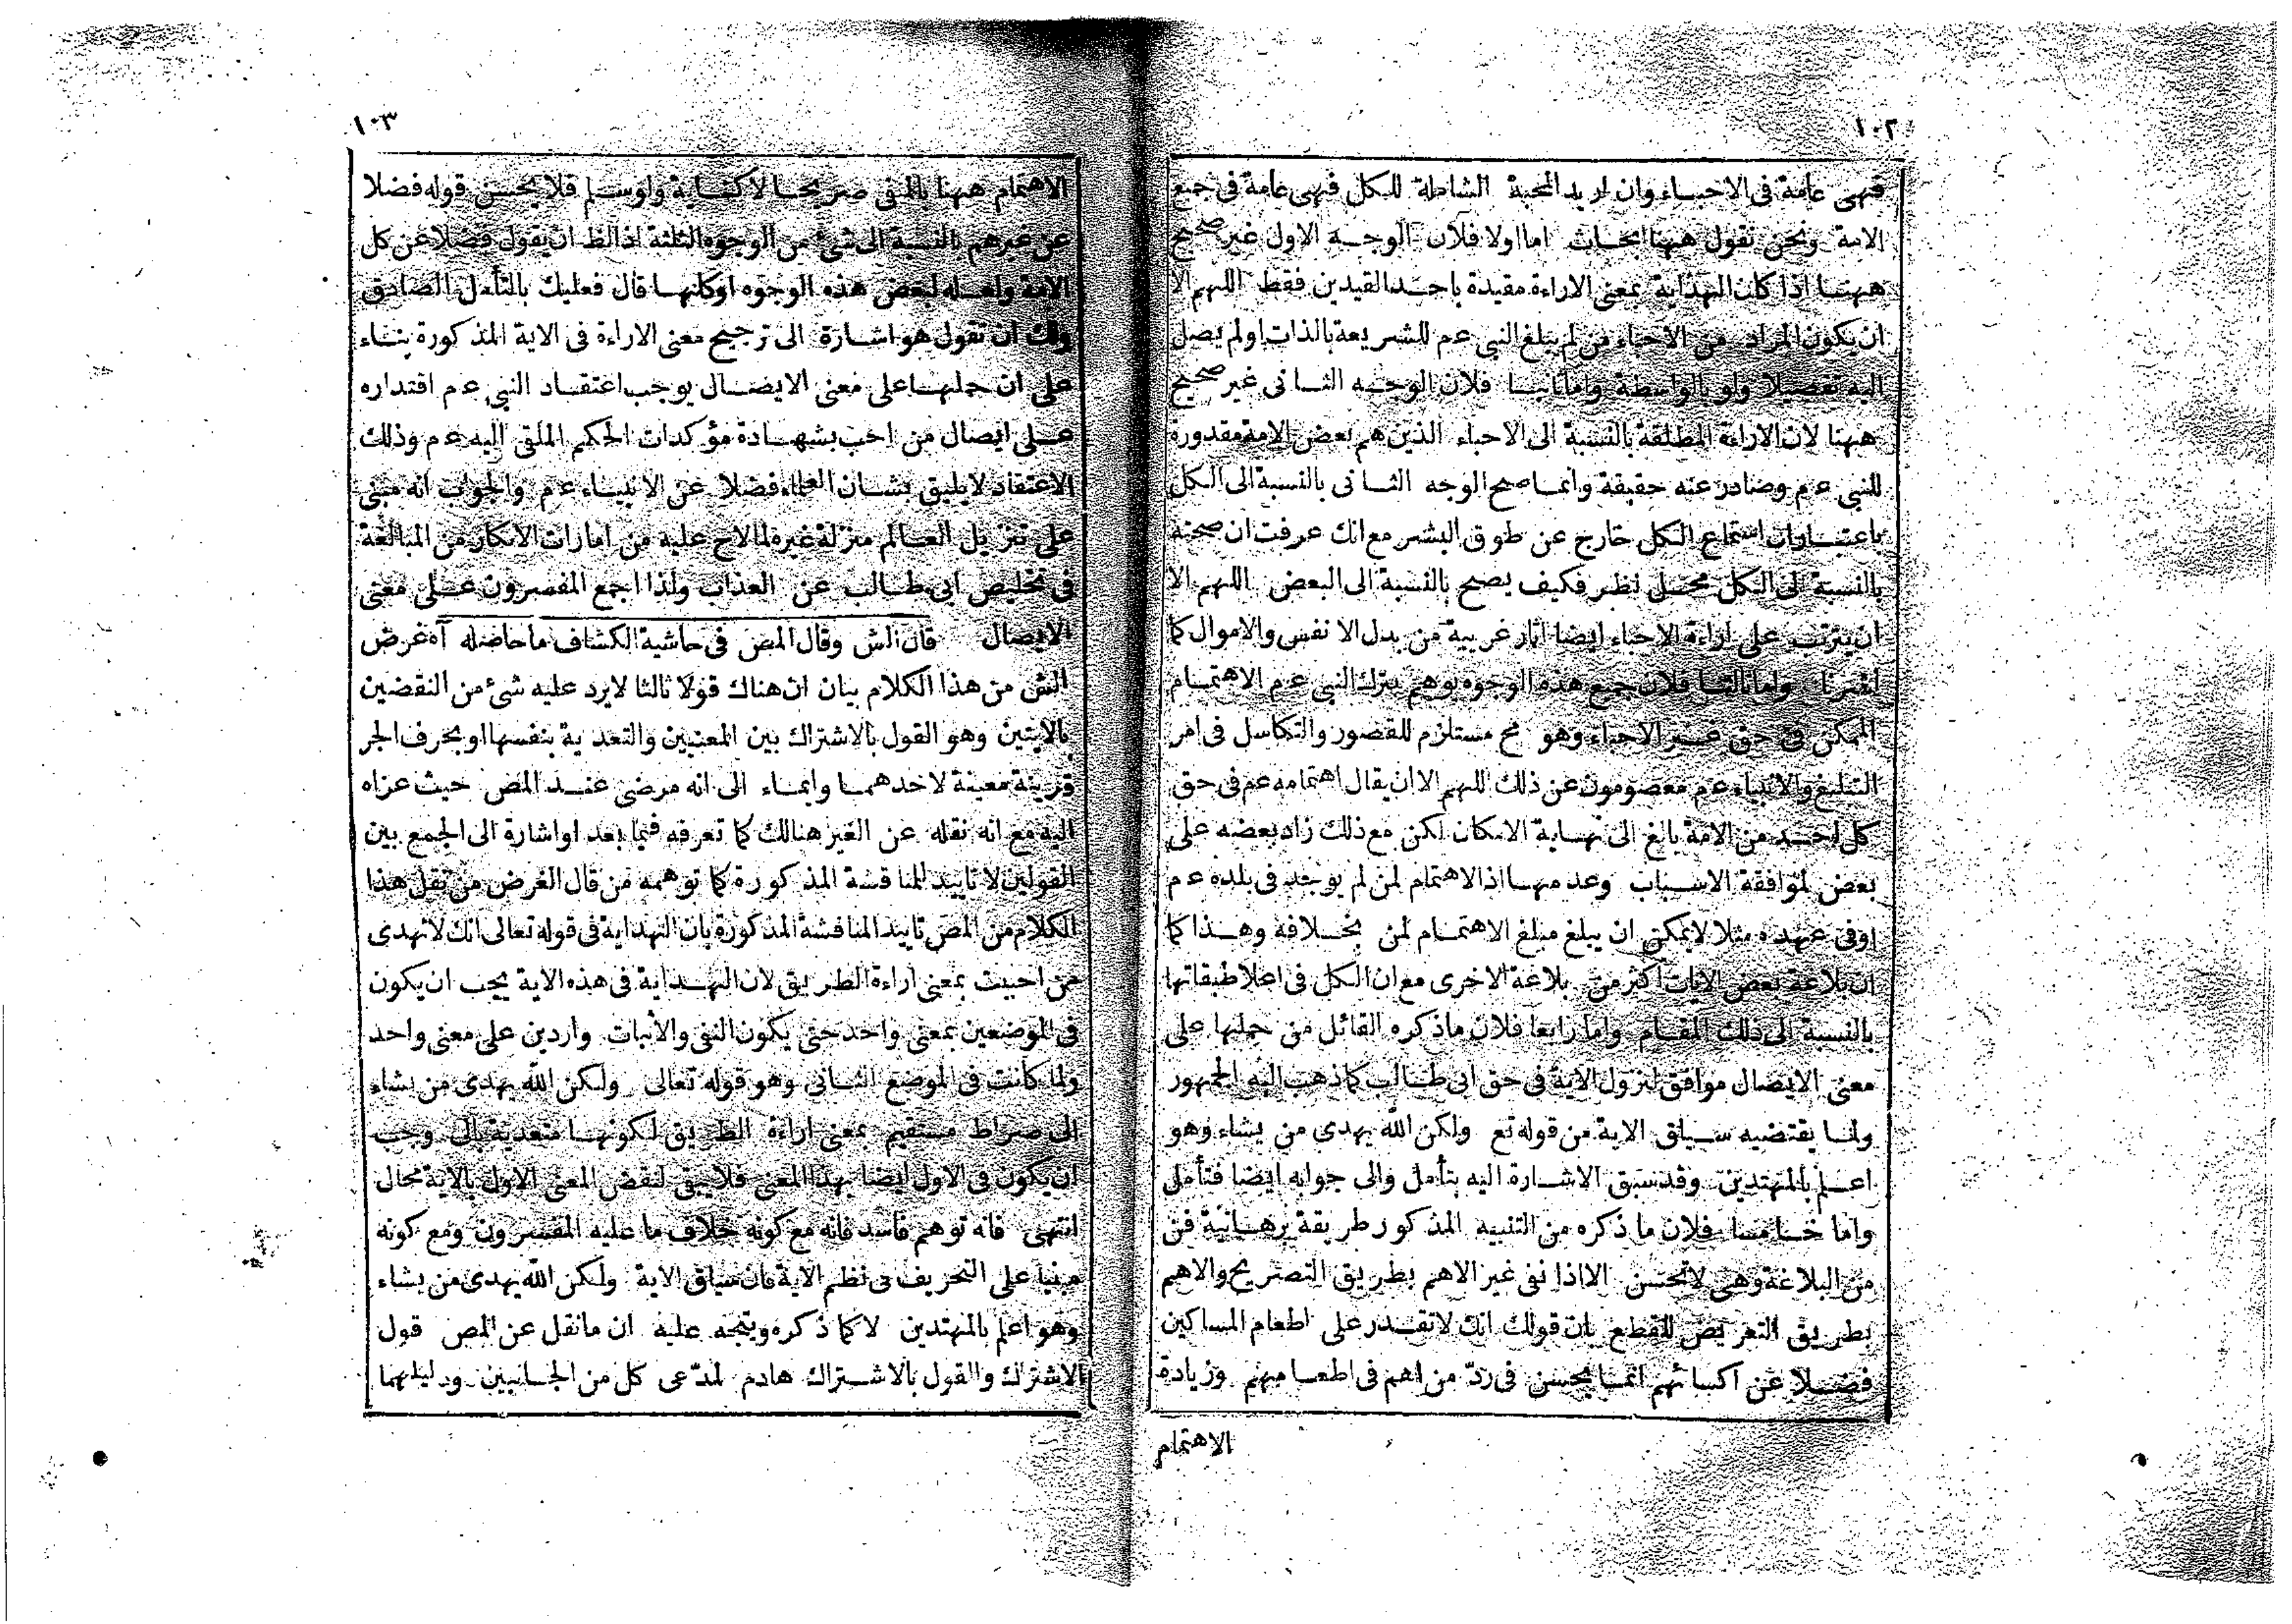 ١٠٢
فهى عامة فى الاحباء وان اريد المحبة الشاملة للكل فهى عامة فى جميع
الامة ونحن نقول ههنا ابحاث اما اولا فلان الوجه الاول غير صحيح
ههنا اذا كان الهداية بمعنى الاراءة مقيدة باحد القيدين فقط اللهم الا
ان يكون المراد من الاحباء من لم يبلغ النبى عم للشريعة بالذات او لم يصل
اليه تفصيلا ولو بالواسطة واما ثانيا فلان الوجه الثانى غير صحيح
ههنا لان الاراءة المطلقة بالنسبة الى الاحباء الذين هم بعض الامة مقدورة
للنبى عم وصادر عنه حقيقة وانما صح الوجه الثانى بالنسبة الى الكل
باعتبار ان استماع الكل خارج عن طوق البشر مع انك عرفت ان صحته
بالنسبة الى الكل محل نظر فكيف يصح بالنسبة الى البعض اللهم الا
ان يترتب على اراءة الاحباء ايضا اثار غريبة من بدل الانفس والاموال كما
اشرنا واما ثالثا فلان جميع هذه الوجوه يوهم بترك النبى عم الاهتمام
الممكن فى حق غير الاحباء وهو مح مستلزم للقصور والتكاسل فى امر
التبليغ والانبياء عم معصومون عن ذلك اللهم الا ان يقال اهتمامه عم فى حق
كل احد من الامة بالغ الى نهاية الامكان لكن مع ذلك زاد بعضه على
بعض لموافقة الاسباب وعدمها اذ الاهتمام لمن لم يوجد فى بلده عم
اوفى عهده مثلا لايمكن ان يبلغ مبلغ الاهتمام لمن بخلافه وهذا كما
ان بلاغة بعض الايات اكثر من بلاغة الاخرى مع ان الكل فى اعلا طبقاتها
بالنسبة الى ذلك المقام واما رابعا فلان ماذكره القائل من حملها على
معنى الايصال موافق لنزول الاية فى حق ابى طالب كما ذهب اليه الجمهور
ولما يقتضيه سياق الاية من قوله تع ولكن الله يهدى من يشاء وهو
اعلم بالمهتدين وقد سبق الاشارة اليه بتأمل والى جوابه ايضا فتأمل
واما خامسا فلان ما ذكره من التنبيه المذكور طريقة برهانية فن
من البلاغة وهى لاتحسن الا اذا نفى غير الاهم بطريق التصريح والاهم
بطريق التعريض للقطع بان قولك انك لاتقدر على اطعام المساكين
فضلا عن اكسائهم انما يحسن فى رد من اهم فى اطعامهم وزيادة
الاهتمام
١٠٣
الاهتمام ههنا بالمنفى صريحا لاكناية ولوسلم فلا يحسن قوله فضلا
عن غيرهم بالنسبة الى شئ من الوجوه الثلثة اذ الظ ان يقول فضلا عن كل
الامة ولعله لبعض هذه الوجوه اوكلها قال فعليك بالتأمل الصادق
ولك ان تقول هو اشارة الى ترجيح معنى الاراءة فى الاية المذكورة بناء
على ان حملها على معنى الايصال يوجب اعتقاد النبى عم اقتداره
على ايصال من احب بشهادة مؤكدات الحكم الملقى اليه عم وذلك
الاعتقاد لايليق بشان العلماء فضلا عن الانبياء عم والجواب انه مبنى
على تنزيل العالم منزلة غيره لما لاح عليه من امارات الانكار من المبالغة
فى تخليص ابى طالب عن العذاب ولذا اجمع المفسرون على معنى
الايصال قال الش وقال المص فى حاشية الكشاف ما حاصله آه غرض
الش من هذا الكلام بيان ان هناك قولا ثالثا لايرد عليه شئ من النقضين
بالايتين وهو القول بالاشتراك بين المعنيين والتعدية بنفسها او بحرف الجر
قرينة معينة لاحدهما وايماء الى انه مرضى عند المص حيث عزاه
اليه مع انه نقله عن الغير هنالك كما تعرفه فيما بعد او اشارة الى الجمع بين
القولين لا تاييد للمناقشة المذكورة كما توهمه من قال الغرض من نقل هذا
الكلام من المص تاييد المناقشة المذكورة بان الهداية فى قوله تعالى انك لاتهدى
من احببت بمعنى اراءة الطريق لان الهداية فى هذه الاية يجب ان يكون
فى الموضعين بمعنى واحد حتى يكون النفى والاثبات واردين على معنى واحد
ولما كانت فى الموضع الثانى وهو قوله تعالى ولكن الله يهدى من يشاء
الى صراط مستقيم بمعنى اراءة الطريق لكونها متعدية بالى وجب
ان يكون فى الاول ايضا بهذا المعنى فلا يبق لنقض المعنى الاول بالاية مجال
انتهى فانه توهم فاسد فانه مع كونه خلاف ما عليه المفسرون ومع كونه
مبنيا على التحريف فى نظم الاية فان سياق الاية ولكن الله يهدى من يشاء
وهو اعلم بالمهتدين لا كما ذكره ويتجه عليه ان مانقل عن المص قول
الاشتراك والقول بالاشتراك هادم لمدّعى كل من الجانبين ودليلهما